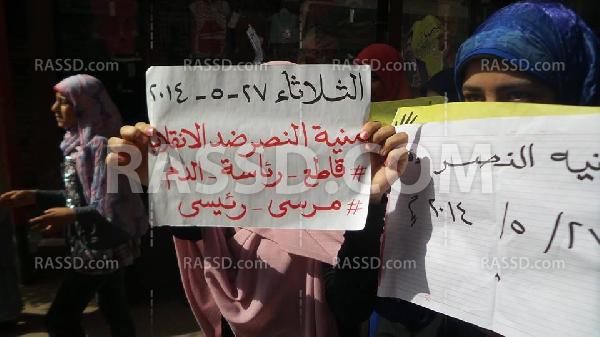 الثلاثاء ٢٧-٥-٢٠١٤
منية النصر ضد الانقلاب
# قاطع - رئاسة - الدم
# مرسى - رئيسى
منيه النصر
٢٧/٥/٢٠١٤
RASSD.COM
RASSD.COM
RASSD.COM
RASSD.COM
RASSD.COM
RASSD.COM
RASSD.COM